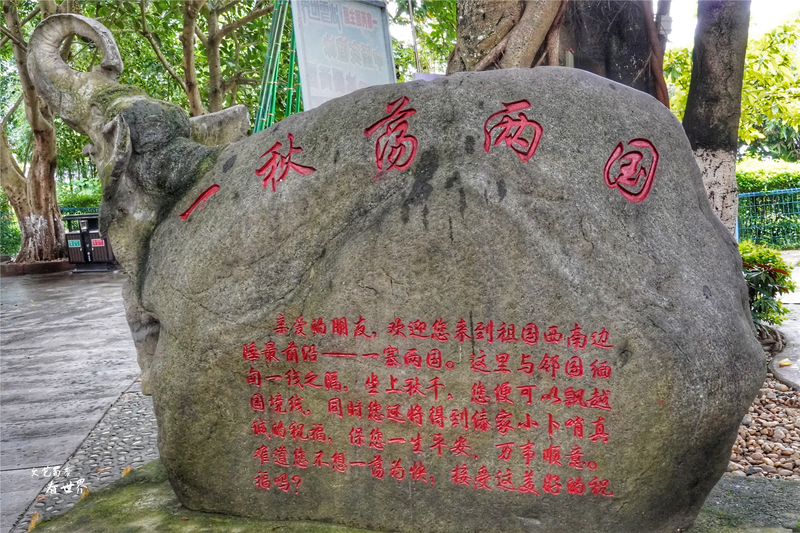 一秋荡两国
亲爱的朋友,欢迎您来到祖国西南边
陲最前沿——一寨两国。这里与邻国缅
甸一线之隔,坐上秋千,您便可以飘越
国境线,同时您还将得到傣家小卜哨真
诚的祝福,保您一生平安,万事顺意。
难道您不想一荡为快,接受这美好的祝
福吗?
看世界